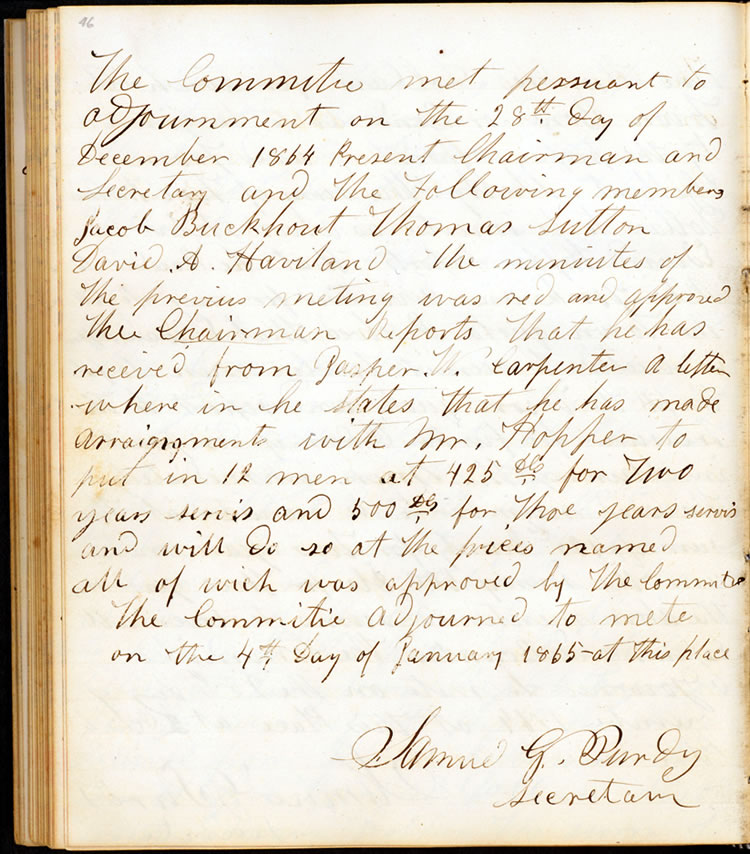 46
The Committie met persuant to
adjournment on the 28th Day of
December 1864 Present Chairman and
Secretary and the Following members
Jacob Buckhout Thomas Sutton
David A. Haviland The minuites of
the previous meting was red and approved
thee Chairman Reports that he has
receved from Jasper. W. Carpenter a letter
where in he states that he has made
arraignments with Mr. Hopper to
put in 12 men at 425 Dls for Two
years servis and 500 Dls for thre years servis
and will do so at the prices named
all of wich was approved by the Committe
The Committie adjourned to mete
on the 4th Day of January 1865 at this place
Samuel G. Purdy
Secretary